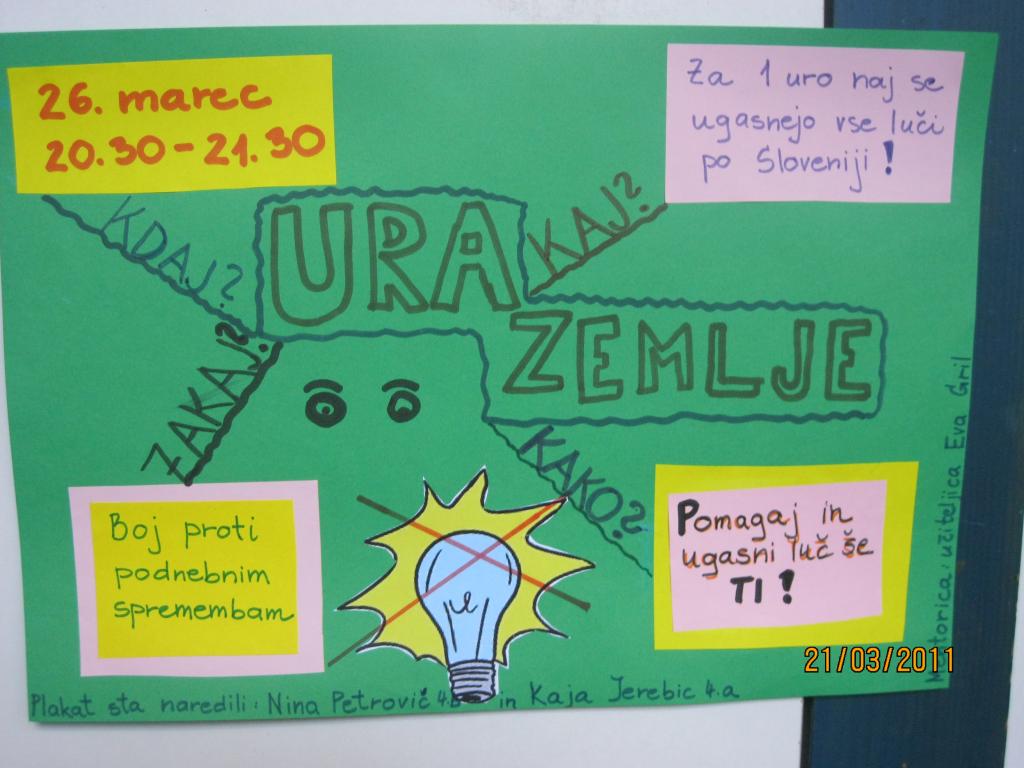 26. marec
20.30 - 21.30
Za 1 uro naj se
ugasnejo vse luči
po Sloveniji!
KDAJ?
URA
KAJ?
ZEMLJE
ZAKAJ?
KAKO?
Boj proti
podnebnim
spremembam
Pomagaj in
ugasni luč še
TI!
Mentorica: učiteljica Eva Gril
21/03/2011
Plakat sta naredili: Nina Petrovič 4.b in Kaja Jerebic 4.a